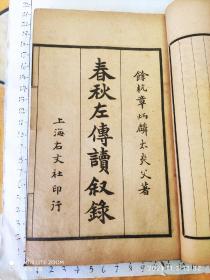 餘杭章炳麟太炎父著
春秋左傳讀叙錄
上海右文社印行